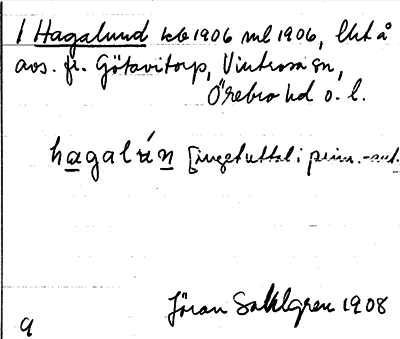 1 Hagalund kb 1906 ml 1906, lht å
avs. fr. Götavitorp, Vintrosa sn,
Örebro hd o. l.
[inget uttal i prim.-ant.
Jöran Sahlgren 1908
9